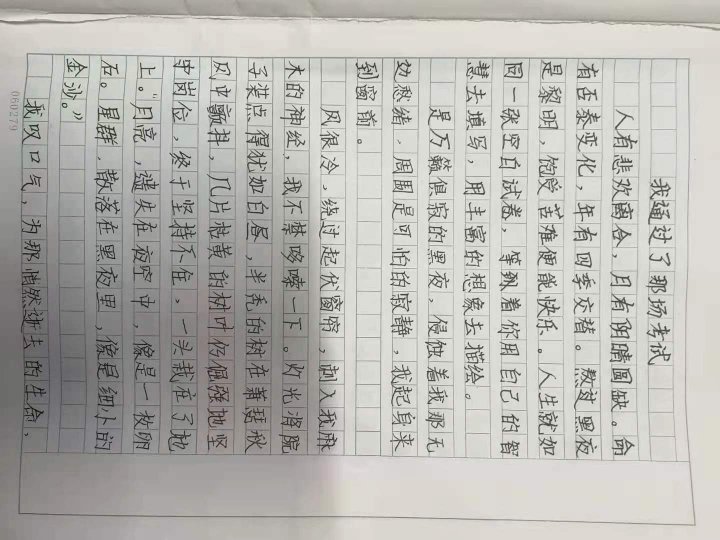 我通过了那场考试
人有悲欢离合，月有阴晴圆缺。命
有否泰变化，年有四季交替。熬过黑夜
是黎明，饱受苦难便能快乐。人生就如
同一张空白试卷，等我着你用自己的智
慧去填写，用丰富的想象去描绘。
是万籁俱寂的黑夜，侵蚀着我那无
边愁绪，周围是可怕的寂静，我起身来
到窗前。
风很冷，绕过起伏窗帘，刺入我麻
木的神经，我不禁哆嗦一下。灯光将院
子装点得犹如白昼，半秃的树在萧瑟秋
风中颤抖，几片枯黄的树叶仍倔强地坚
守岗位，终于坚持不住，一头栽在了地
上。“月亮，遗失在夜空中，像是一枚卵
石。星群，散落在黑夜里，像是细小的
金沙。”
我叹口气，为那悄然逝去的生命，
060279